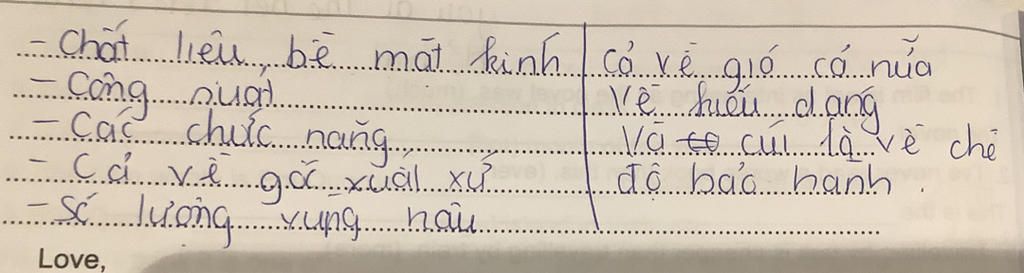 - Chất liệu, bề mặt kính
- Công suất
- Các chức năng
- Cả về gốc xuất xứ
- Số lượng vùng nấu
Cả về giá cá nữa
Về kiểu dáng
Và cuối là về chế
độ bảo hành.
Love,